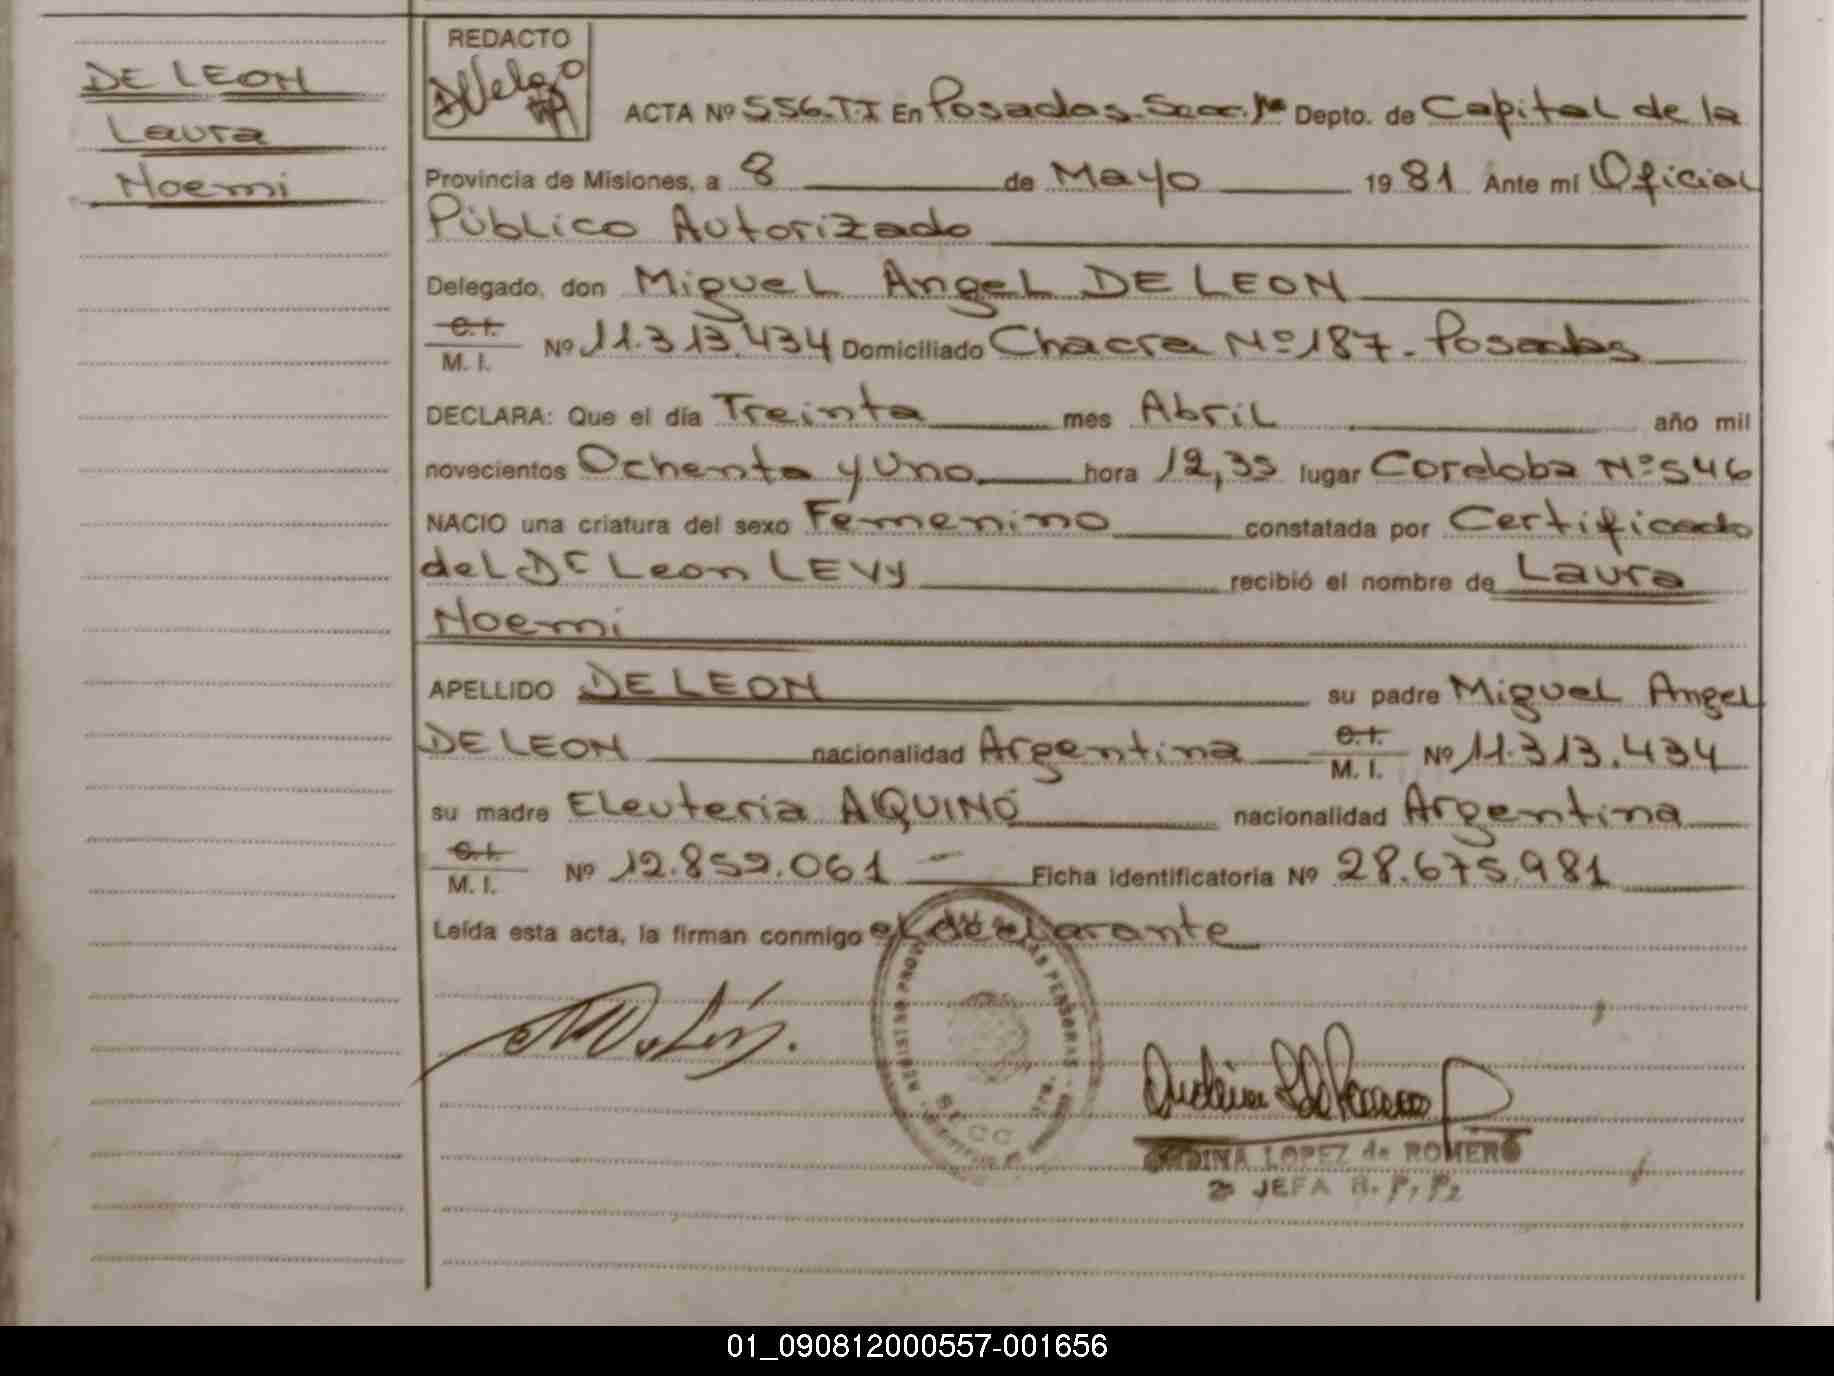 DE LEON
Laura
Noemi
REDACTO
ACTA Nº 556. T.I En Posadas. Secc. 1ra Depto. de Capital de la
Provincia de Misiones, a 8 de Mayo 1981 Ante mi Oficial
Público Autorizado
Delegado, don Miguel Angel DE LEON
C.I.
M. I. Nº 11.313.434 Domiciliado Chacra Nº 187. Posadas
DECLARA: Que el día Treinta mes Abril año mil
novecientos Ochenta y Uno hora 12,35 lugar Cordoba Nº 546
NACIO una criatura del sexo Femenino constatada por Certificado
del Dr Leon LEVY recibió el nombre de Laura
Noemi
APELLIDO DE LEON su padre Miguel Angel
DE LEON nacionalidad Argentina C.I. M. I. Nº 11.313.434
su madre Eleuteria AQUINO nacionalidad Argentina
C.I.
M. I. Nº 12.852.061 Ficha identificatoria Nº 28.675.981
Leída esta acta, la firman conmigo el declarante
LOPEZ de ROMERO
JEFA
01_090812000557-001656